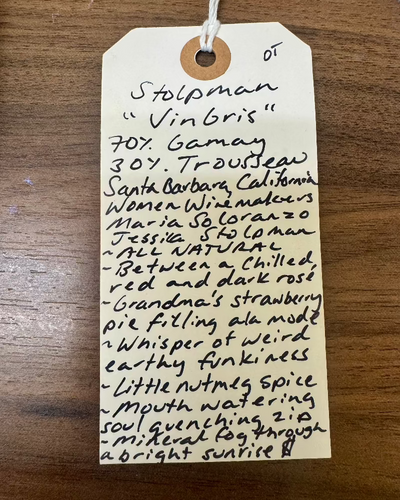 OT
Stolpman
"VinGris"
70%. Gamay
30%. Trousseau
Santa Barbara, California
Women Winemakers
Maria Soloranzo
Jessika Stolpman
~ALL NATURAL
-Between a Chilled,
red and dark rosé
~Grandma's strawberry
pie filling ala mode
~Whisper of weird
earthy funkiness
~Little nutmeg spice
~Mouth watering
soul quenching zip
~Mineral fog through
a bright sunrise